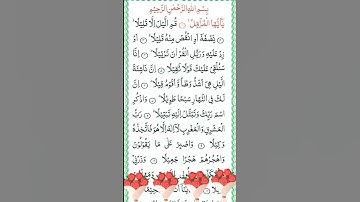 بِسْمِ اللهِ الرَّحْمٰنِ الرَّحِيْمِ
يٰۤاَيُّهَا الْمُزَّمِّلُ ۙ ① قُمِ الَّيْلَ اِلَّا قَلِيْلًا ۙ
② نِّصْفَهٗۤ اَوِ انْقُصْ مِنْهُ قَلِيْلًا ۙ ③ اَوْ
زِدْ عَلَيْهِ وَرَتِّلِ الْقُرْاٰنَ تَرْتِيْلًا ؕ ④ اِنَّا
سَنُلْقِيْ عَلَيْكَ قَوْلًا ثَقِيْلًا ⑤ اِنَّ نَاشِئَةَ
الَّيْلِ هِيَ اَشَدُّ وَطْاً وَّ اَقْوَمُ قِيْلًا ؕ ⑥ اِنَّ
لَكَ فِي النَّهَارِ سَبْحًا طَوِيْلًا ؕ ⑦ وَاذْكُرِ
اسْمَ رَبِّكَ وَتَبَتَّلْ اِلَيْهِ تَبْتِيْلًا ؕ ⑧ رَبُّ
الْمَشْرِقِ وَالْمَغْرِبِ لَاۤ اِلٰهَ اِلَّا هُوَ فَاتَّخِذْهُ
وَكِيْلًا ⑨ وَاصْبِرْ عَلٰى مَا يَقُوْلُوْنَ
وَاهْجُرْهُمْ هَجْرًا جَمِيْلًا ⑩ وَذَرْنِيْ